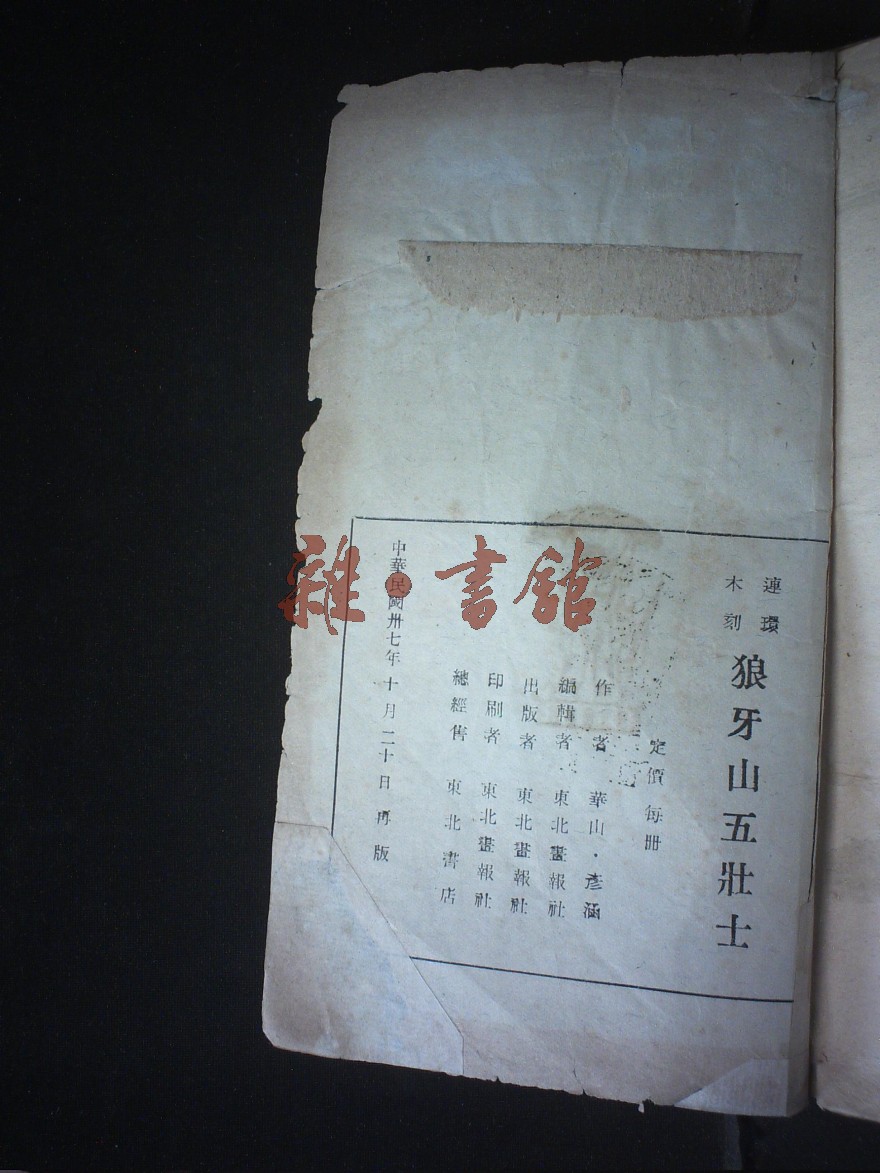 連環
木刻
狼牙山五壯士
定價每冊
作者 華山·彥涵
編輯者 東北畫報社
出版者 東北畫報社
印刷者 東北畫報社
總經售 東北書店
中華民國卅七年十月二十日再版
雜·書館